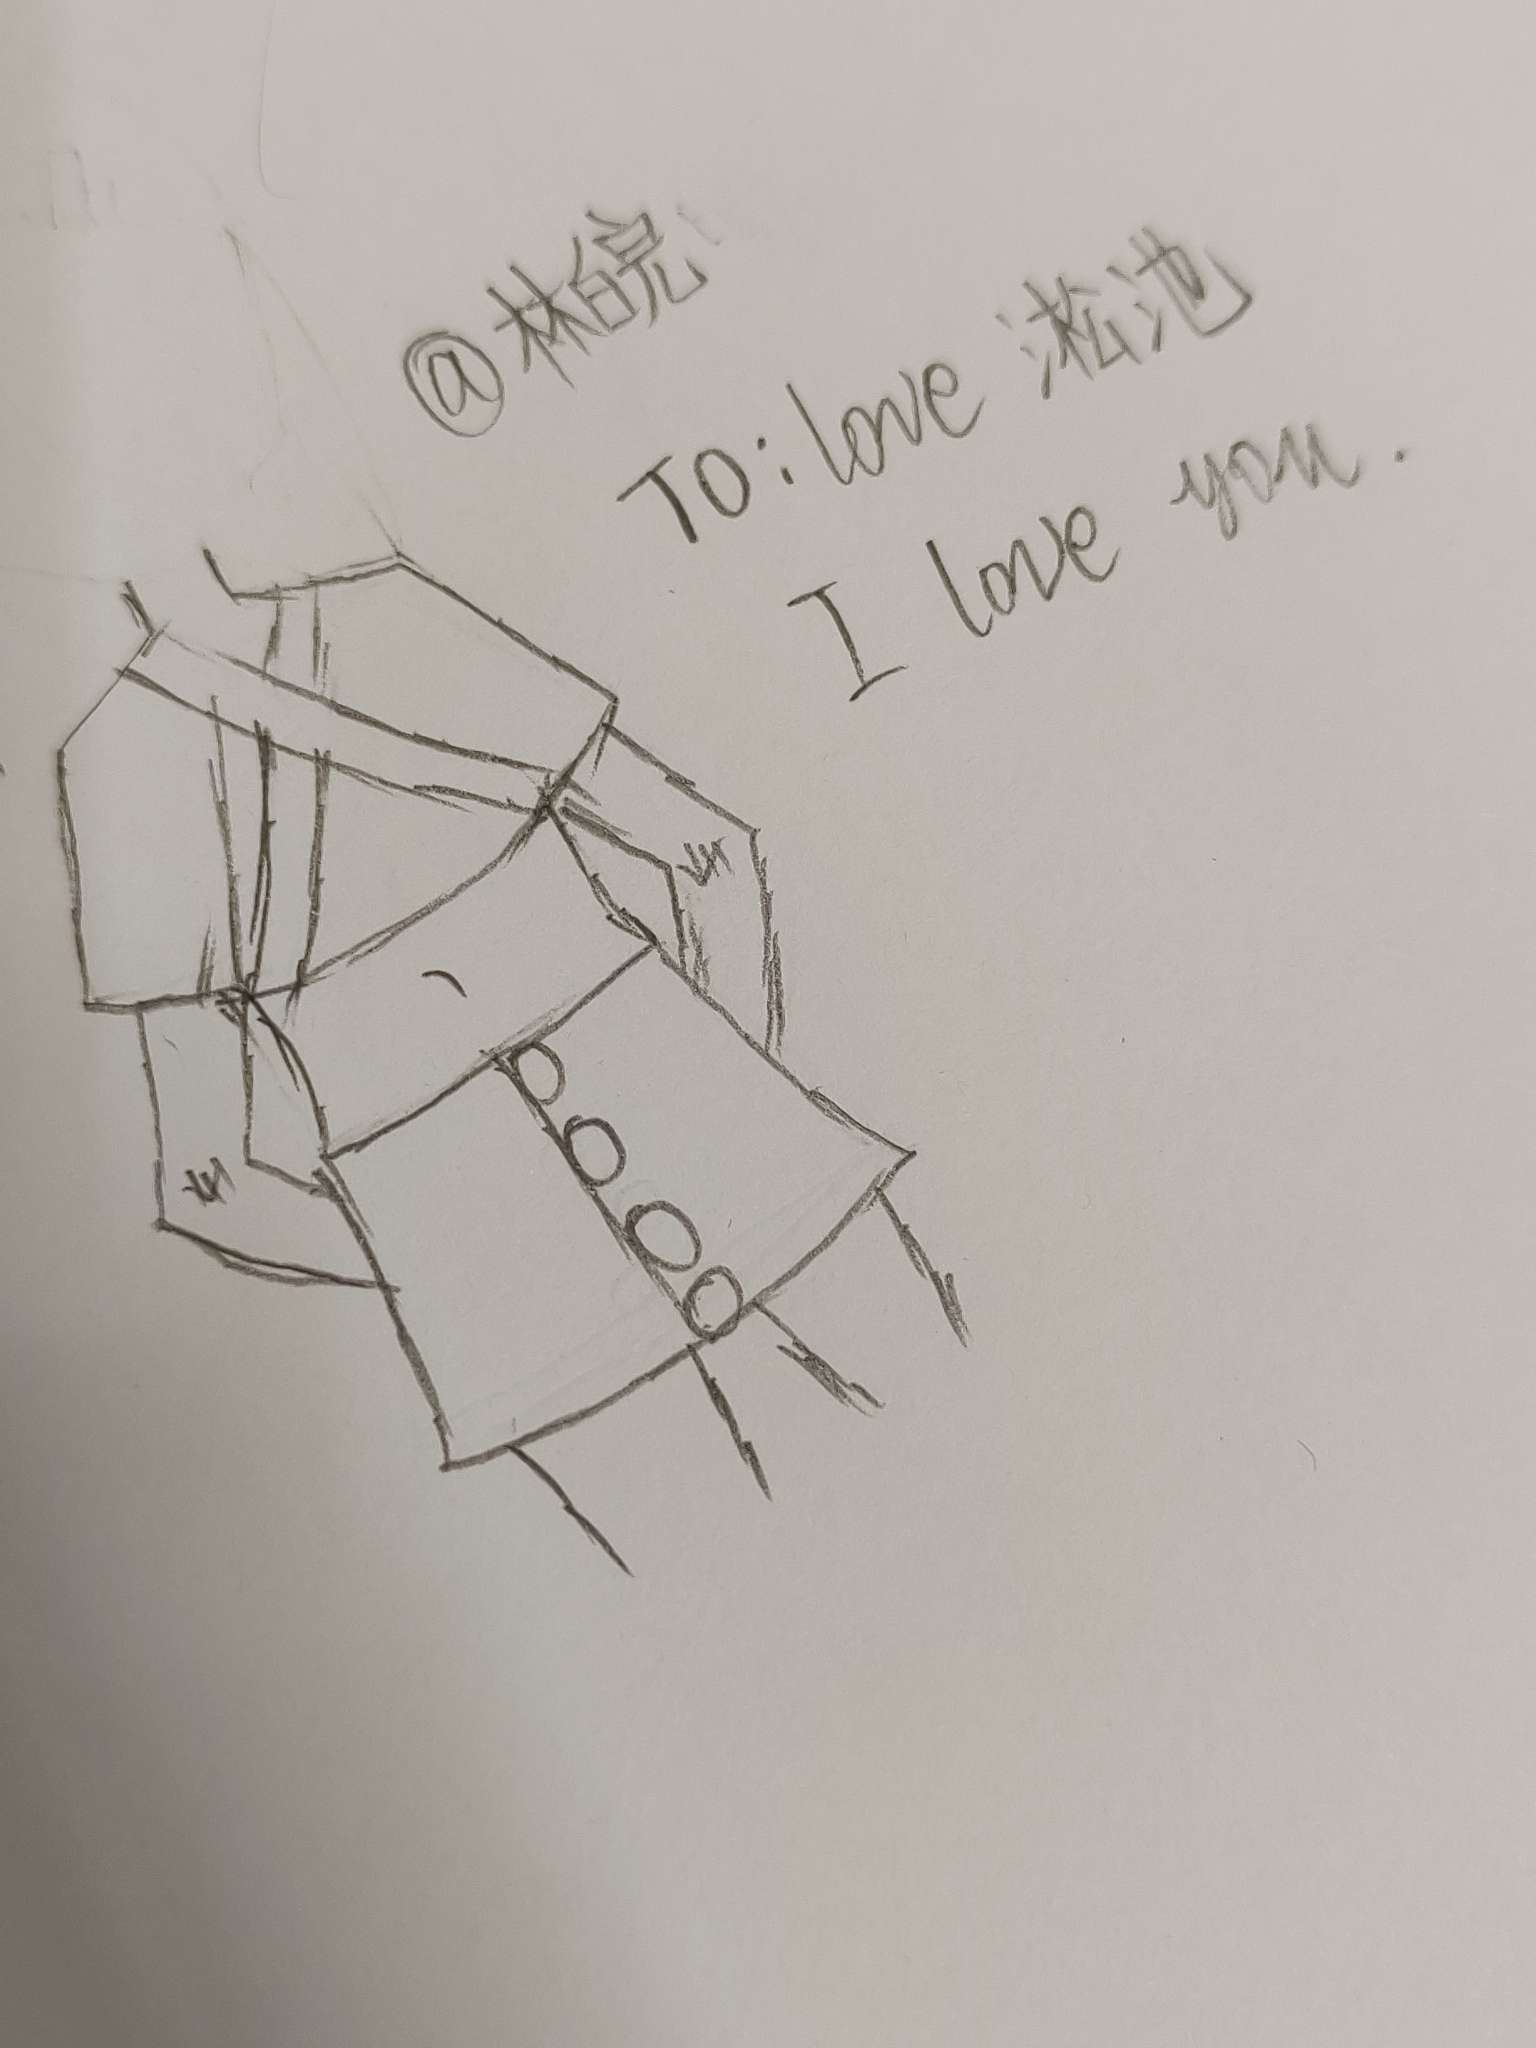 @林皖
To: love 淞池
I love you.